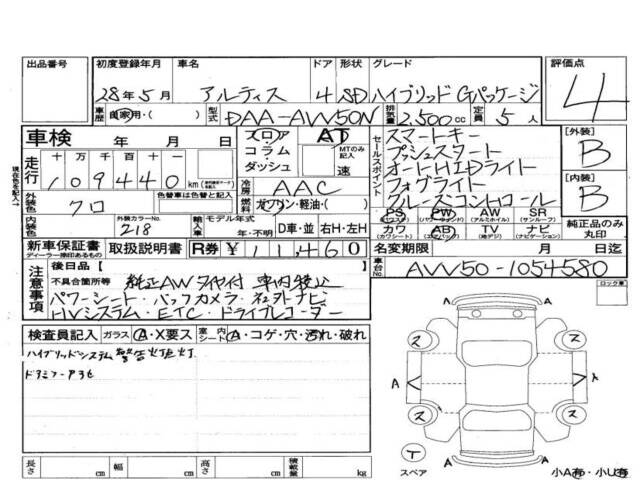 出品番号 初度登録年月 車名 ドア 形状 グレード 評価点
28年5月 アルティス 4 SD ハイブリッド Gパッケージ 4
車歴 自家用・( ) 型式 DAA-AVV50N 排気量 2.500cc 定員 5人
車検 年 月 日 フロア AT セールスポイント スマートキー [外装]
コラム MTのみ記入 プッシュスタート B
走行 十万千百十一 ダッシュ 速 オートHIDライト
109440 km 冷房 AAC フォグライト [内装]
外装色 クロ 色替車は色替前色 燃料 ガソリン・軽油・( ) クルーズコントロール B
PS PW AW SR
(パワーウィンドウ) (アルミホイル) (サンルーフ)
内装色 外装カラーNo. 218 輸入車 モデル年式 年・不明 D車・並 右H・左H カワ AB TV ナビ 純正品のみ丸印
(カワシート) (エアバッグ) (地デジ) (ナビゲーション)
新車保証書 取扱説明書 R券 ¥11,460 名変期限 月 日迄
ディーラー捺印あるもの
後日品[ ] 車台No. AVV50-1054580
注意事項 不具合箇所等 純正AWタイヤ付 車内積込
パワーシート・バックカメラ・社外ナビ ロック車
HVシステム・ETC・ドライブレコーダー
検査員記入 ガラス A・X要ス 室内シート A・コゲ・穴・汚れ・破れ
ハイブリッドシステム警告灯点灯
A
ス ス
A A
ス ス
T
スペア A 小A有・小U有
長さ cm 幅 cm 高さ cm 積載量 kg